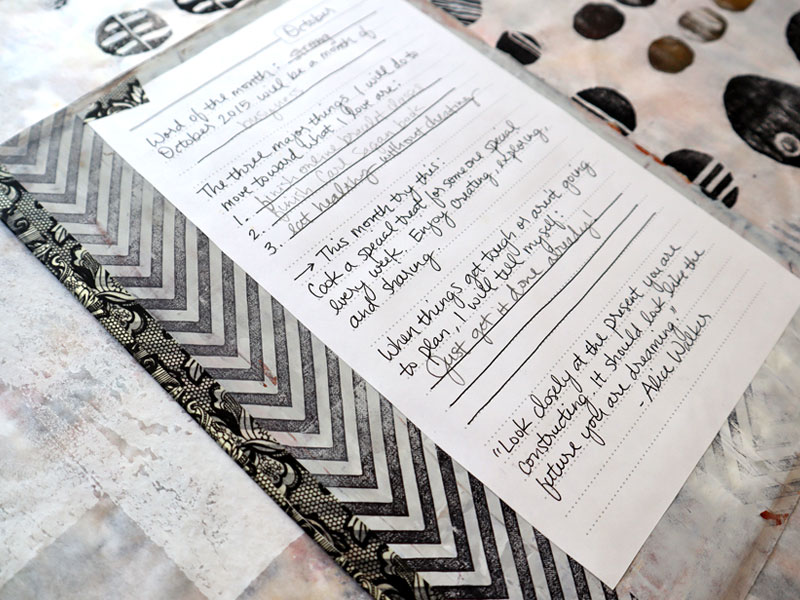 October
Word of the month:
October 2015 will be a month of
busyness
The three major things I will do to
move toward what I love are:
1. finish online class
2. Finish Carl Sagan book
3. eat healthy without cheating
→ This month try this:
Cook a special treat for someone special
every week. Enjoy creating, exploring,
and sharing.
When things get tough or arent going
to plan, I will tell myself:
Just get it done already!
"Look closely at the present you are
constructing. It should look like the
future you are dreaming."
- Alice Walker